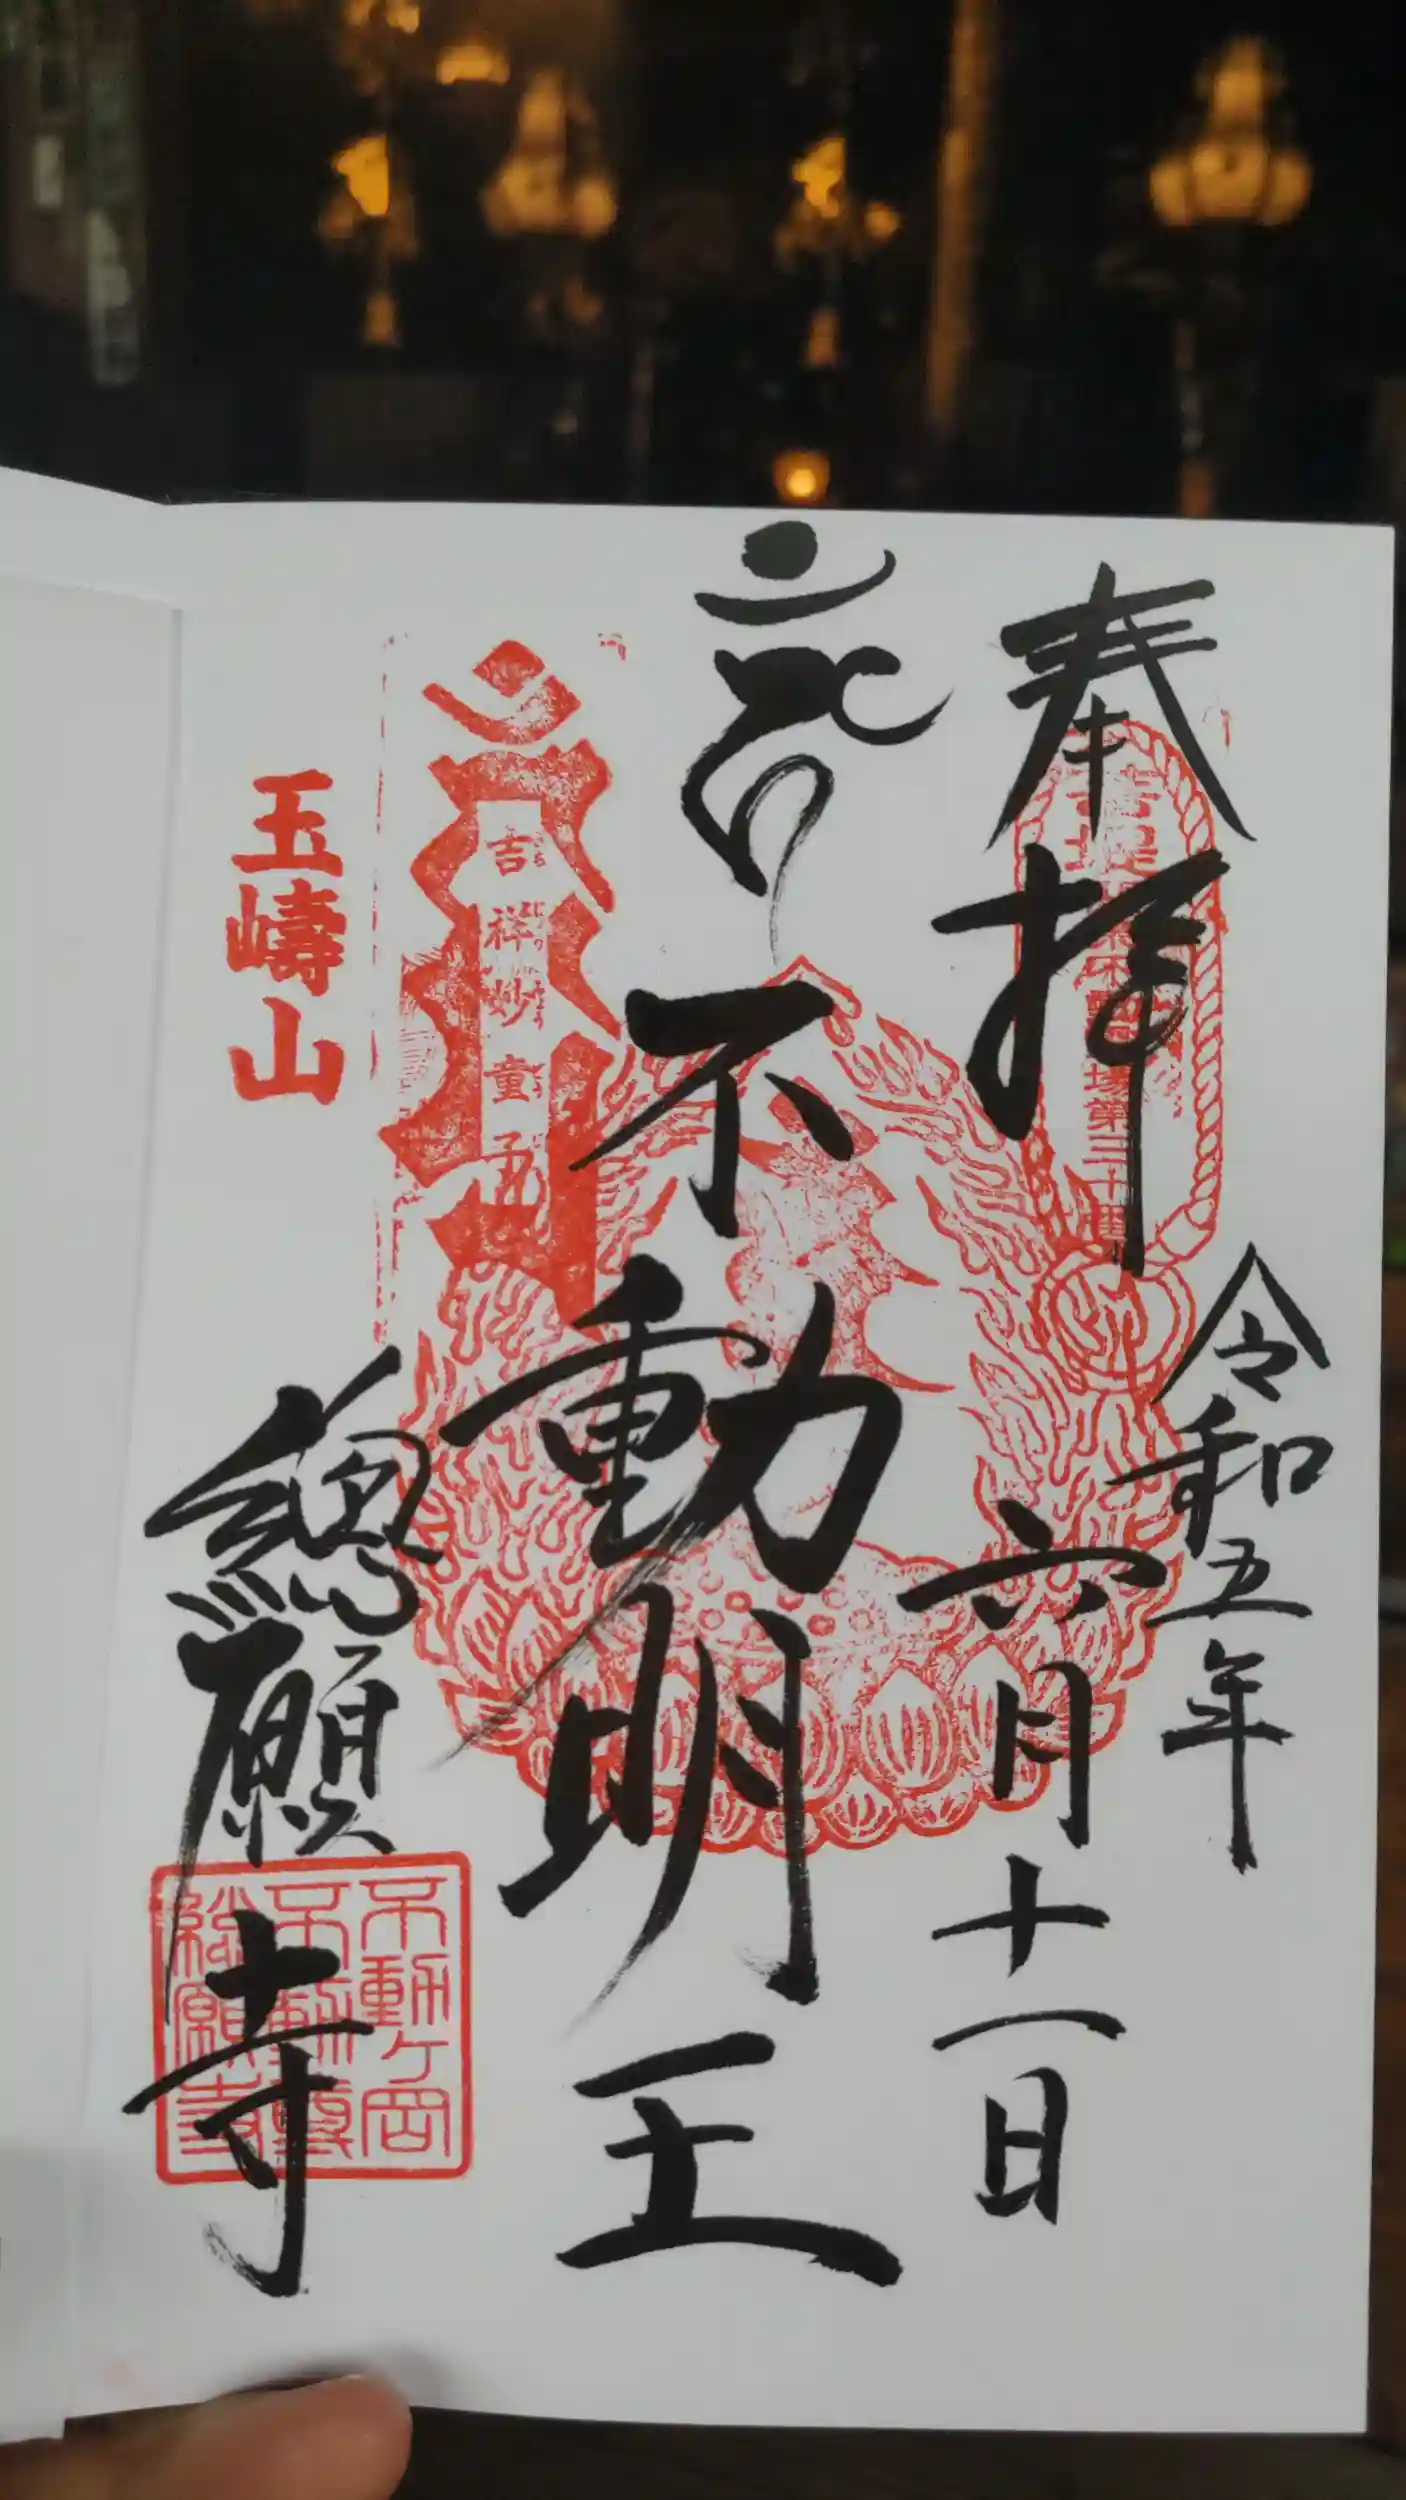 奉拝
令和五年
六月十一日
不動明王
吉祥妙童子
玉嶹山
總願寺
不動ヶ岡
不動尊
總願寺